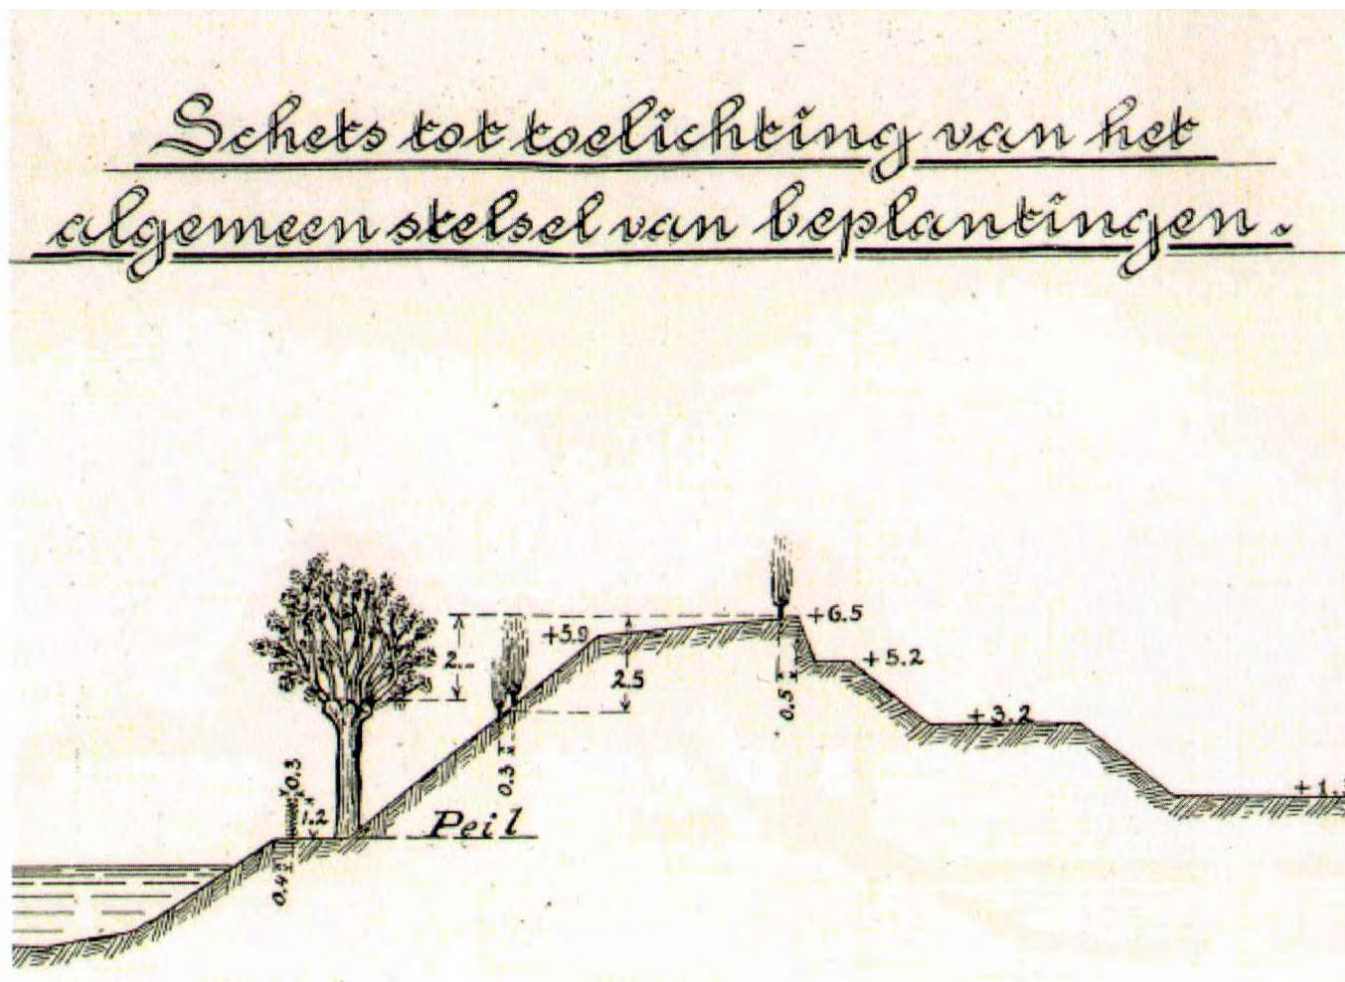 Schets tot toelichting van het
algemeen stelsel van beplantingen.
+6.5
+5.9
2.-
2.5
+5.2
0.5
+3.2
0.3
0.3
1.2
+1.
Peil
0.4